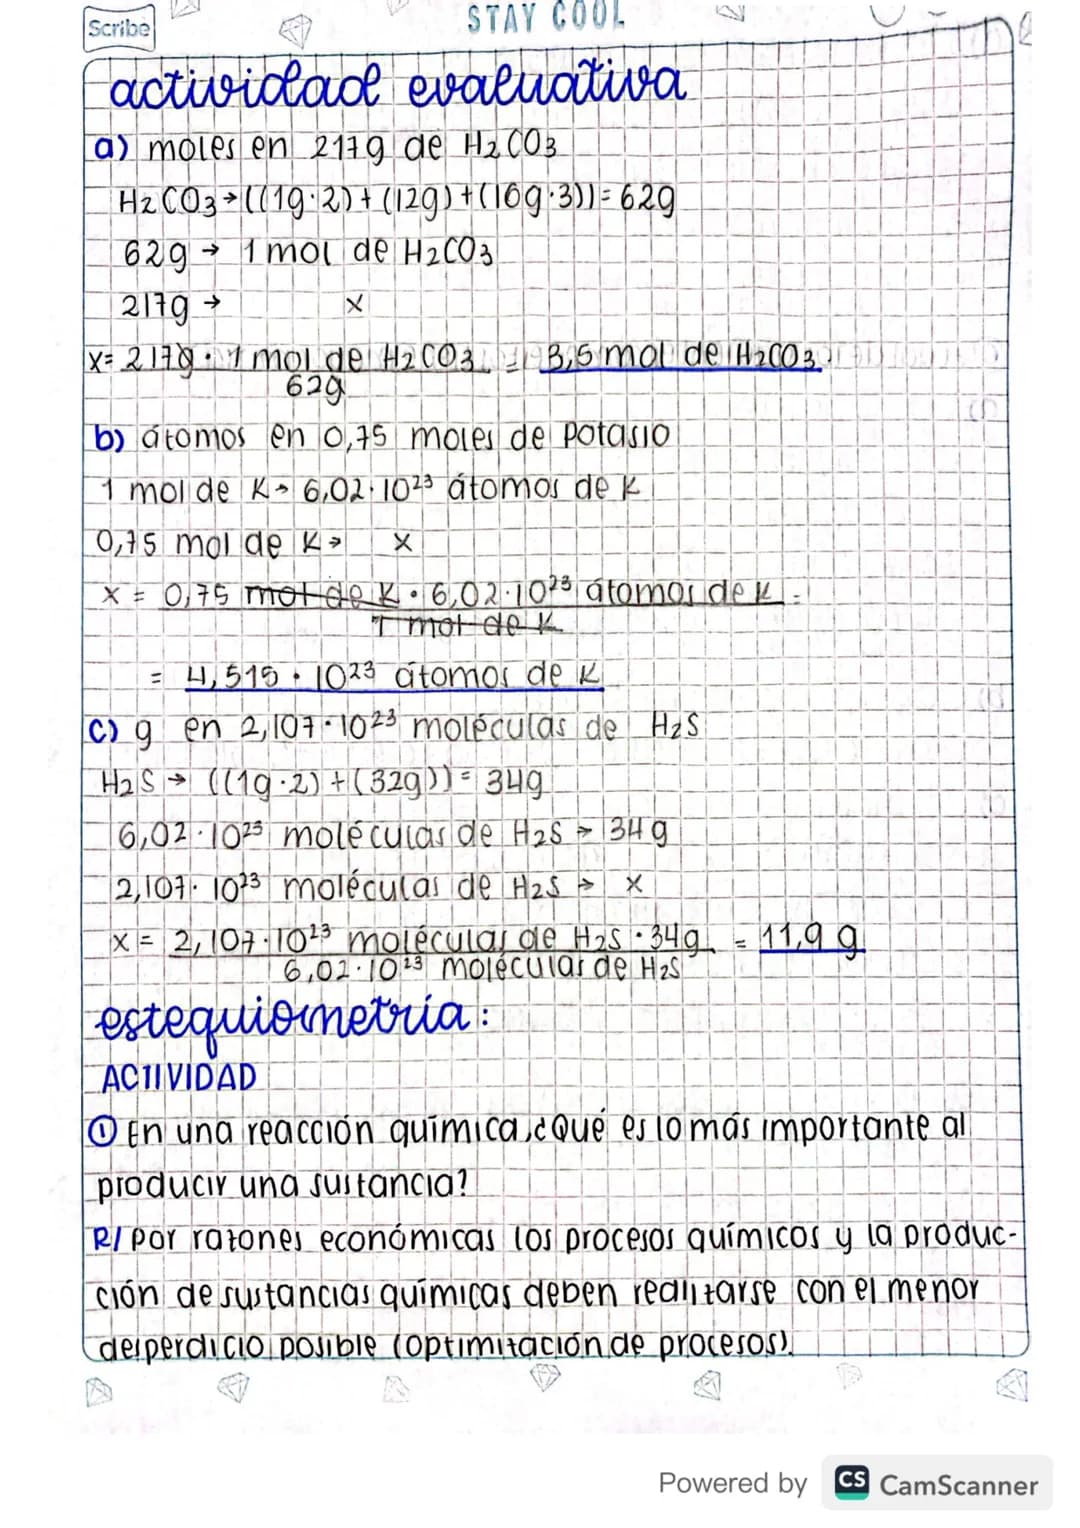 Scribe
STAY COOL
actividad evaluativa
a) moles en 217g de H₂CO₃
H₂CO₃→((1g·2)+(12g)+(16g·3))=62g
62g → 1 mol de H₂CO₃
217g → x
x= 217g · 1 mol de H₂CO₃ = 3,5 mol de H₂CO₃
62g
b) átomos en 0,75 moles de potasio
1 mol de K→ 6,02·10²³ átomos de K
0,75 mol de K→ x
x = 0,75 mol de K · 6,02·10²³ átomos de K =
1 mol de K
= 4,515 · 10²³ átomos de K
c) g en 2,107·10²³ moléculas de H₂S
H₂S → ((1g·2)+(32g))= 34g
6,02·10²³ moléculas de H₂S → 34g
2,107·10²³ moléculas de H₂S → x
x = 2,107·10²³ moléculas de H₂S · 34g = 11,9 g
6,02·10²³ moléculas de H₂S
estequiometría:
ACTIVIDAD
① En una reacción química, ¿Qué es lo más importante al
producir una sustancia?
R/ Por razones económicas los procesos químicos y la produc-
ción de sustancias químicas deben realizarse con el menor
desperdicio posible (optimización de procesos).
Powered by CS CamScanner